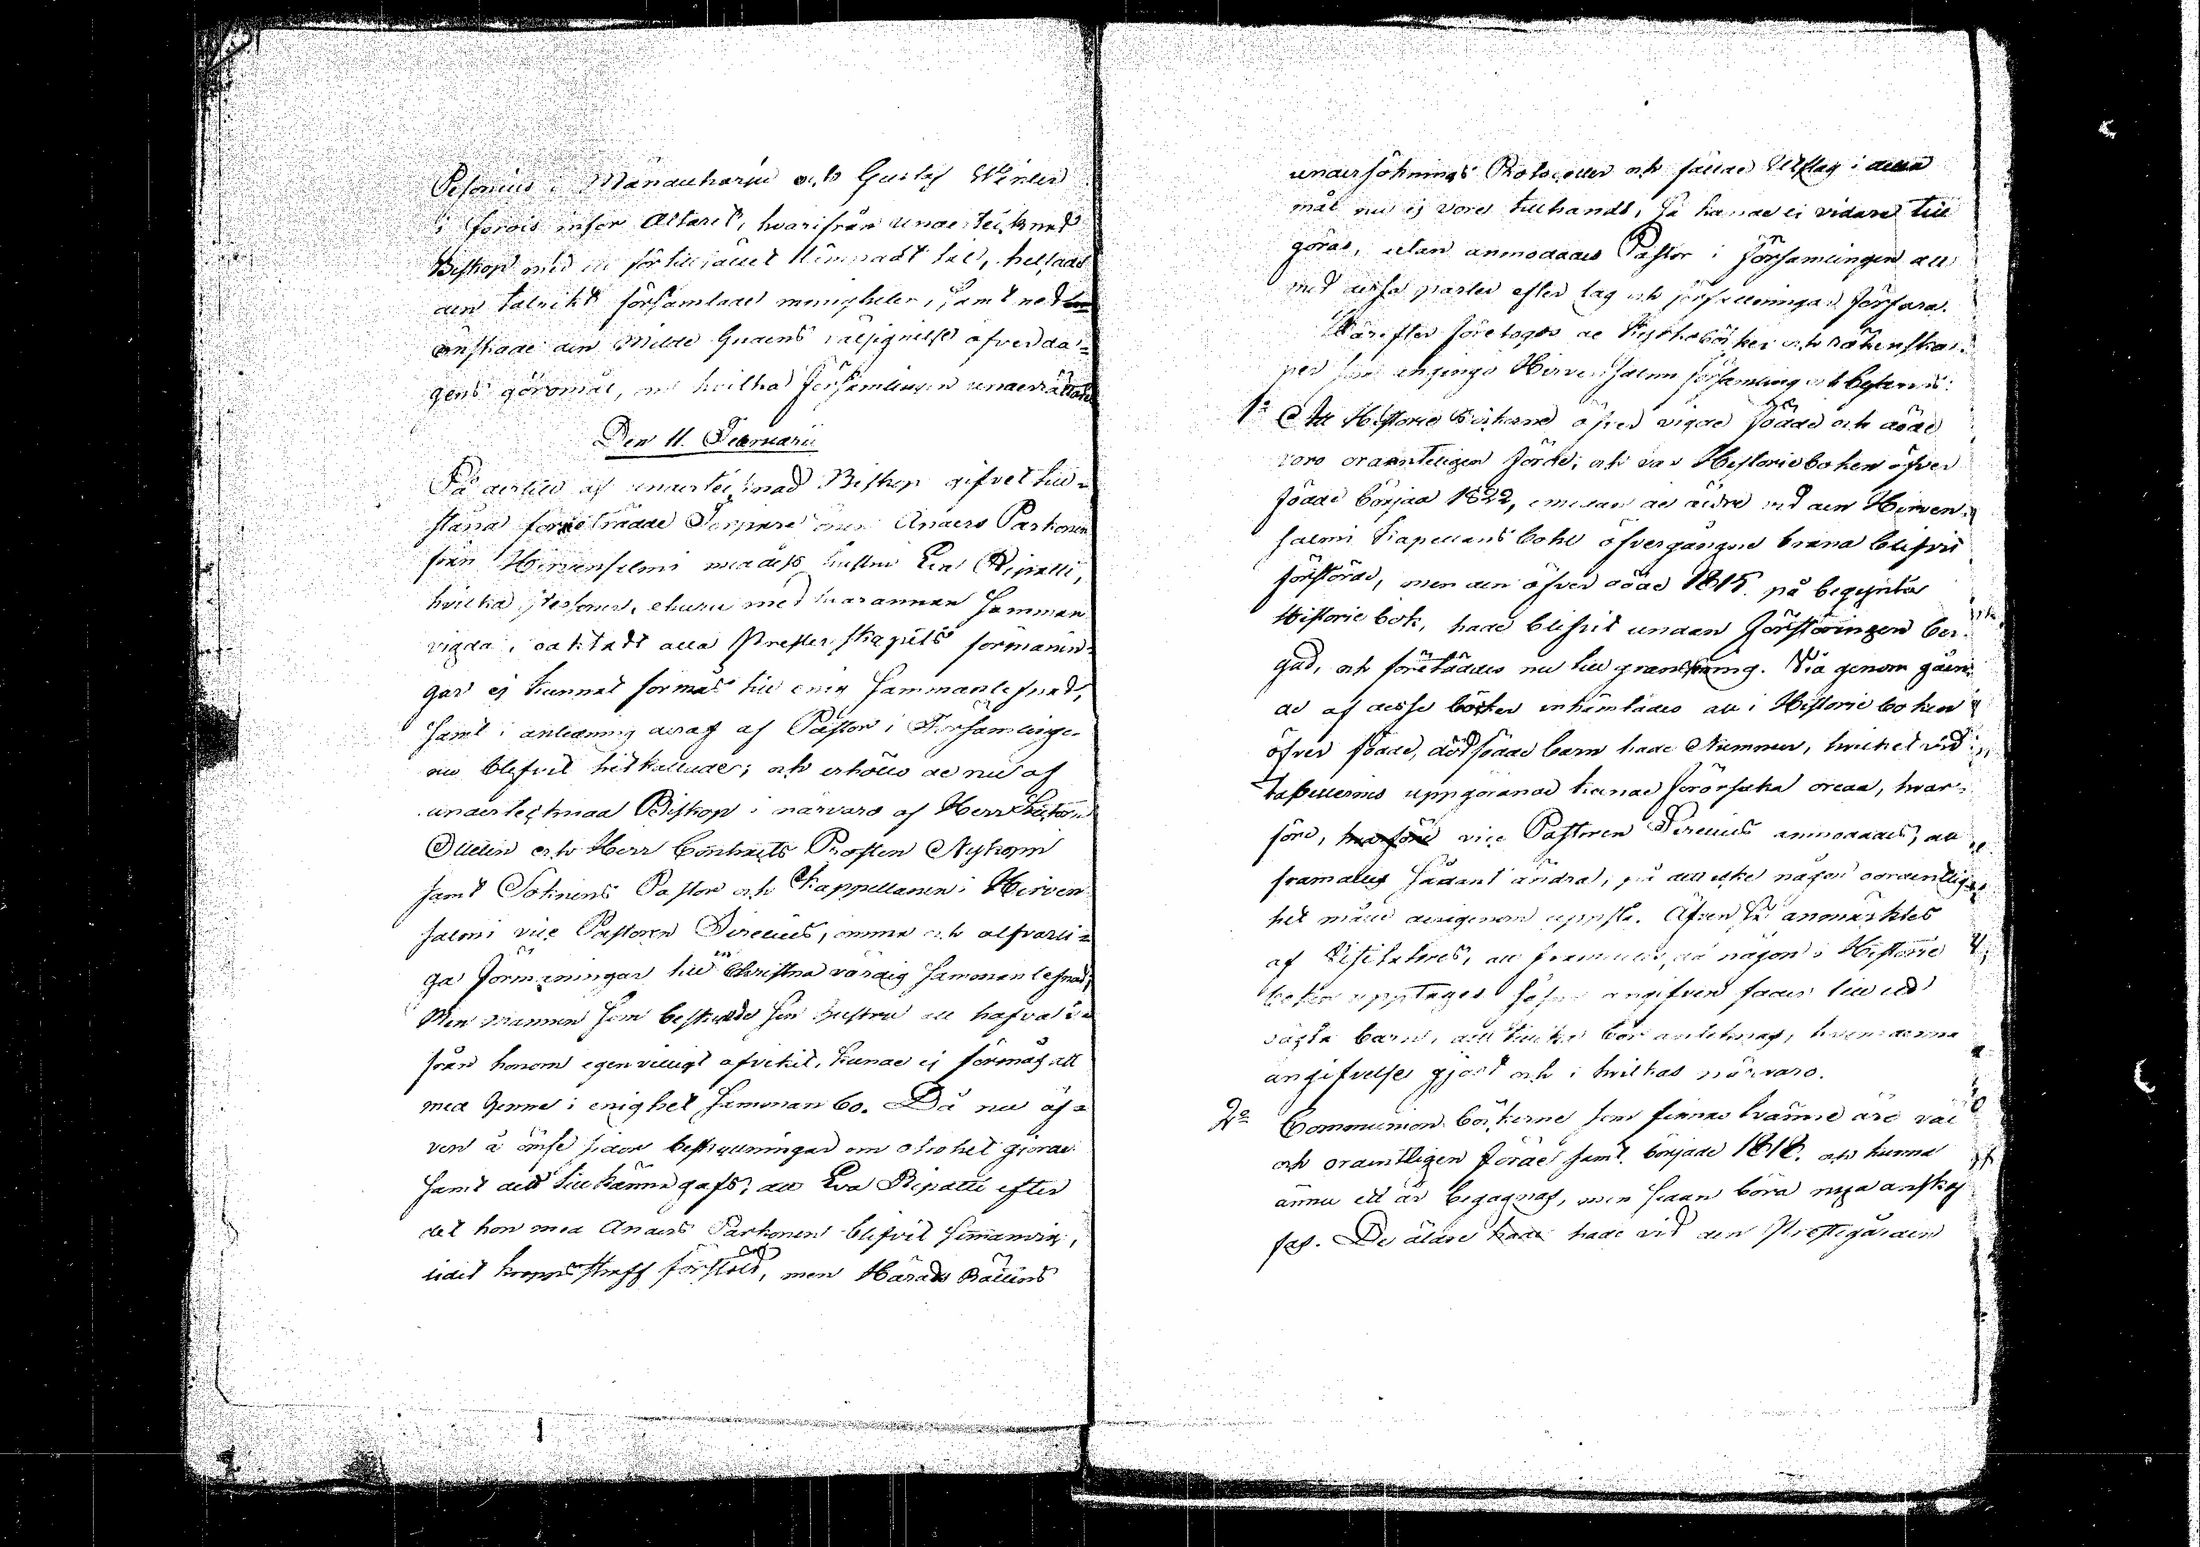 Pesonius i Mänduharju och Gustaf Winter
i förois inför Altaret, hvarifrån undertecknad
Biskop med ett för tillfället lämpadt tal, helsade
den talrikt församlade menigheten, samt
önskade den Milde Gudens välsignelse öfver da=
gens göromål, om hvilka Församlingen underrättades
Den 11. Februarii
På dertill af undertecknad Biskop gifvet till=
stånd företrädde Torpare Anders Parkonen
från Hirvensalmi med dess hustru Eva Ripatti,
hvilka personer, ehuru med hvarannan samman
vigda, oaktadt alla Presterskapets förmanin=
gar ej kunnat förmås till enig sammanlefnad,
samt i anledning deraf af Pastor i Församlingen
nu blifvit hitkallade; och erhöllo de nu af
undertecknad Biskop i närvaro af Herr Lectorn
och Herr Contracts Prosten Nykopp
samt Soknens Pastor och Kappellanen i Hirven
salmi vice Pastoren Sirelius, ömma och alfvarli=
ga förmaningar till en Christna värdig sammanlefnad;
Men mannen som beskyllde sin hustru att hafva i=
från honom egenvilligt afvikit, kunde ej förmås att
med henne i enighet samman bo. Då nu äf=
ven å ömse sidor beskyllningar om otrohet gjordes
samt det tillkänna gafs, att Eva Ripatti efter
det hon med Anders Parkonen blifvit sammanvigd,
lidit kroppsstraff för stöld, men Härads Rättens
undersöknings Protocoller och fällde Utslag i detta
mål nu ej vore tillhands, så kunde ej vidare till
göras, utan anmodades Pastor i Församlingen att
med dessa parter efter lag och författningar förfara.
Härefter företogos de Kyrkoböcker och räkenska=
per som angingo Hirvensalmi församling och befanns:
1o Att Historie Böckerne öfver vigde födde och döde
voro ordenteligen förde; och var Historieboken öfver
födde börjad 1822, emedan de äldre vid den Hirven=
salmi Kapellans bohl öfvergångne brand blifvit
förstörde, men den öfver döde 1815 på begynta
Historie bok, hade blifvit undan förstöringen ber=
gad, och företeddes nu till granskning. Vid genom gåen=
de af desse böcker inhämtades att i Historie boken
öfver födde, dödfödde barn hade Nummer, hvilket vid
tabellernes uppgörande kunde förorsaka oreda, hvar=
före, hvarföre vice Pastoren Sirelius anmodades, att
framdeles sådant ändra, på det icke någon oordentlig=
het måtte derigenom uppstå. Äfven så anmärktes
af Visitators, att framdeles, då någon i Historie
boken upptages såsom angifven fader till
oägta barn, det tillika bör antecknas, hvem denna
angifvelse gjort och i hvilkas närvaro.
2o Communion böckerne som finnas tvänne äro väl
och ordentligen förde samt började 1818. och kunna
ännu ett år begagnas, men sedan böra nya anskaf
fas. De äldre hade hade vid den Prestegården